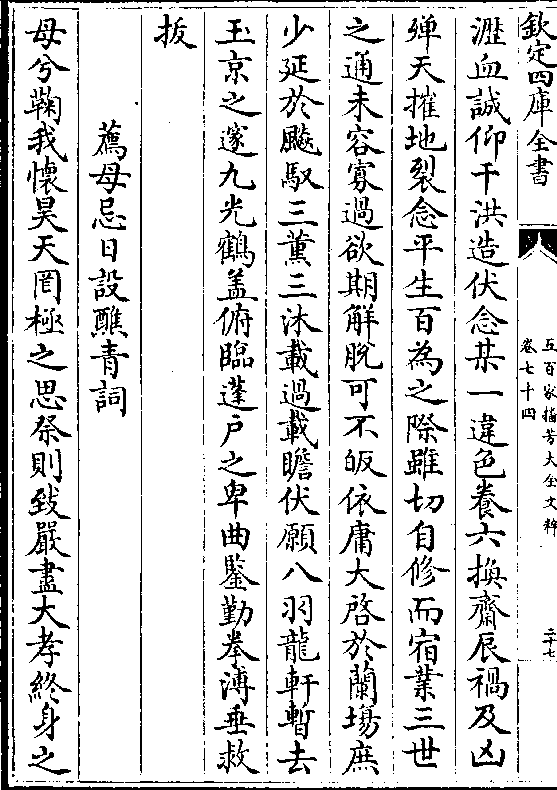 欽定四庫全書
五百家播芳大全文粹
卷七十四
三十七
瀝血誠仰干洪造伏念某一違色養六換齋辰禍及凶
殫天摧地裂念平生百為之際雖切自修而宿業三世
之通未容寡過欲期解脫可不皈依庸大啓於蘭場庶
少延於飈馭三薰三沐載過載瞻伏願八羽龍軒暫去
玉京之邃九光鶴盖俯臨蓬户之卑曲鑒勤拳溥垂救
拔
薦母忌日設醮青詞
母兮鞠我懷昊天罔極之思祭則致嚴盡大孝終身之